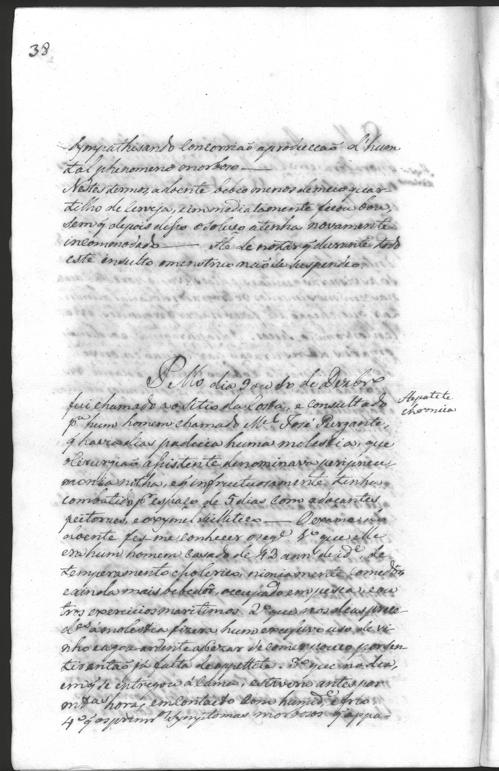 38
Sympathisando concorrão a producção d'hum
tal phenomeno morboso
Nestes termos, a doente bebeo menos de meio quar
tilho de Cerveja, e immediatamente ficou boa,
sem q depois disso o soluço a tenha novamente
incommodado He de notar q durante todo
este insulto o menstruo não se suspendeo.
No dia 9 ou 10 de Dezbrº
Hepatite
chronica
fui chamado ao sitio da Costa, e consultado
pª hum homem chamado Mel José Purgante,
q havia dias padecia huma molestia, que
o Cirurgião assistente denominava peripneu-
monia notha, e infructuosamente tinha
combatido pr espaço de 5 dias com adoçantes
peitoraes, e oxymel scillitico O exame do
doente fes me conhecer o segte 1º que elle
era hum homem casado de 43 anns de ide, de
temperamento cholerico, nimiamente comedor
e ainda mais bebedor, occupado em pesca, e ou
tros exercicios maritimos. 2º que nos dias prece
des á molestia fizera hum excessivo uso de vi-
nho e agoa ardente apezar de comer pouco por sen-
tir então já falta de appetite. 3º que no dia,
em q se entregou á cama, estivera antes por
mtas horas em contacto com humide e frio
4º q os primros symptomas morbosos q appa-